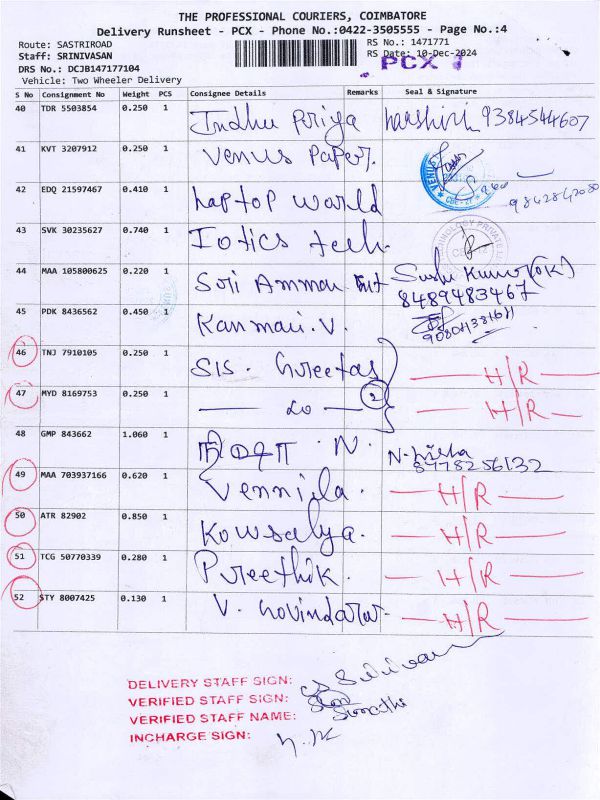 THE PROFESSIONAL COURIERS, COIMBATORE
Delivery Runsheet - PCX - Phone No.:0422-3505555 - Page No.:4
Route: SASTRIROAD RS No.: 1471771
Staff: SRINIVASAN RS Date: 10-Dec-2024
DRS No.: DCJB147177104 PCX
Vehicle: Two Wheeler Delivery
S No Consignment No Weight PCS Consignee Details Remarks Seal & Signature
40 TDR 5503854 0.250 1 Indhu Priya 9384544607
41 KVT 3207912 0.250 1 Venus Paper.
VENUS
42 EDQ 21597467 0.410 1 Laptop World
43 SVK 30235627 0.740 1 Iotics tech.
44 MAA 105800625 0.220 1 Sri Amman Ent
8489483467
45 PDK 8436562 0.450 1 Kanmani. V.
46 TNJ 7910105 0.250 1 SIS. H/R
47 MYD 8169753 0.250 1 — do — 2 H/R
48 GMP 843662 1.060 1 நிஷா . N. N. Nisha
8778256132
49 MAA 703937166 0.620 1 Vennila. H/R
50 ATR 82902 0.850 1 Kowsalya. H/R
51 TCG 50770339 0.280 1 Preethik. H/R
52 STY 8007425 0.130 1 V. Govindaraj. H/R
DELIVERY STAFF SIGN:
VERIFIED STAFF SIGN:
VERIFIED STAFF NAME:
INCHARGE SIGN: